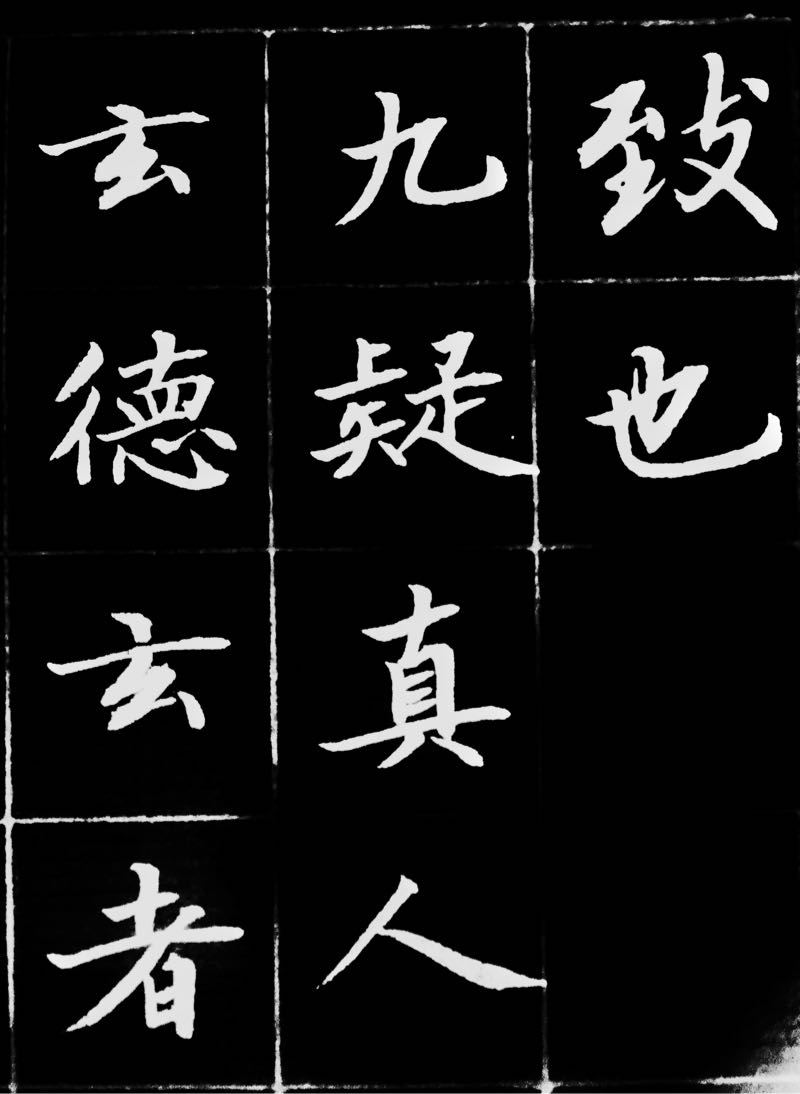 玄德玄者
九疑真人
致也